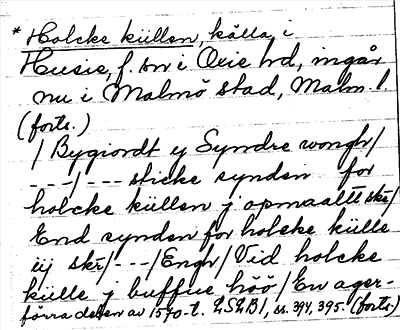 * Holcke küllen, källa, i
Husie, f. sn i Oxie hd, ingår
nu i Malmö stad, Malm. l.
(forts.)
/ Bygiordt y Syndre wongh/
---/--- sticke synden for
holcke küllen j opmaaltt skr/
End synden for holcke külle
iij skr/---/Engh/ Vid holcke
külle j buffue höö/ En ager-
förra delen av 1570-t. LSLB1, ss. 394, 395. (forts.)